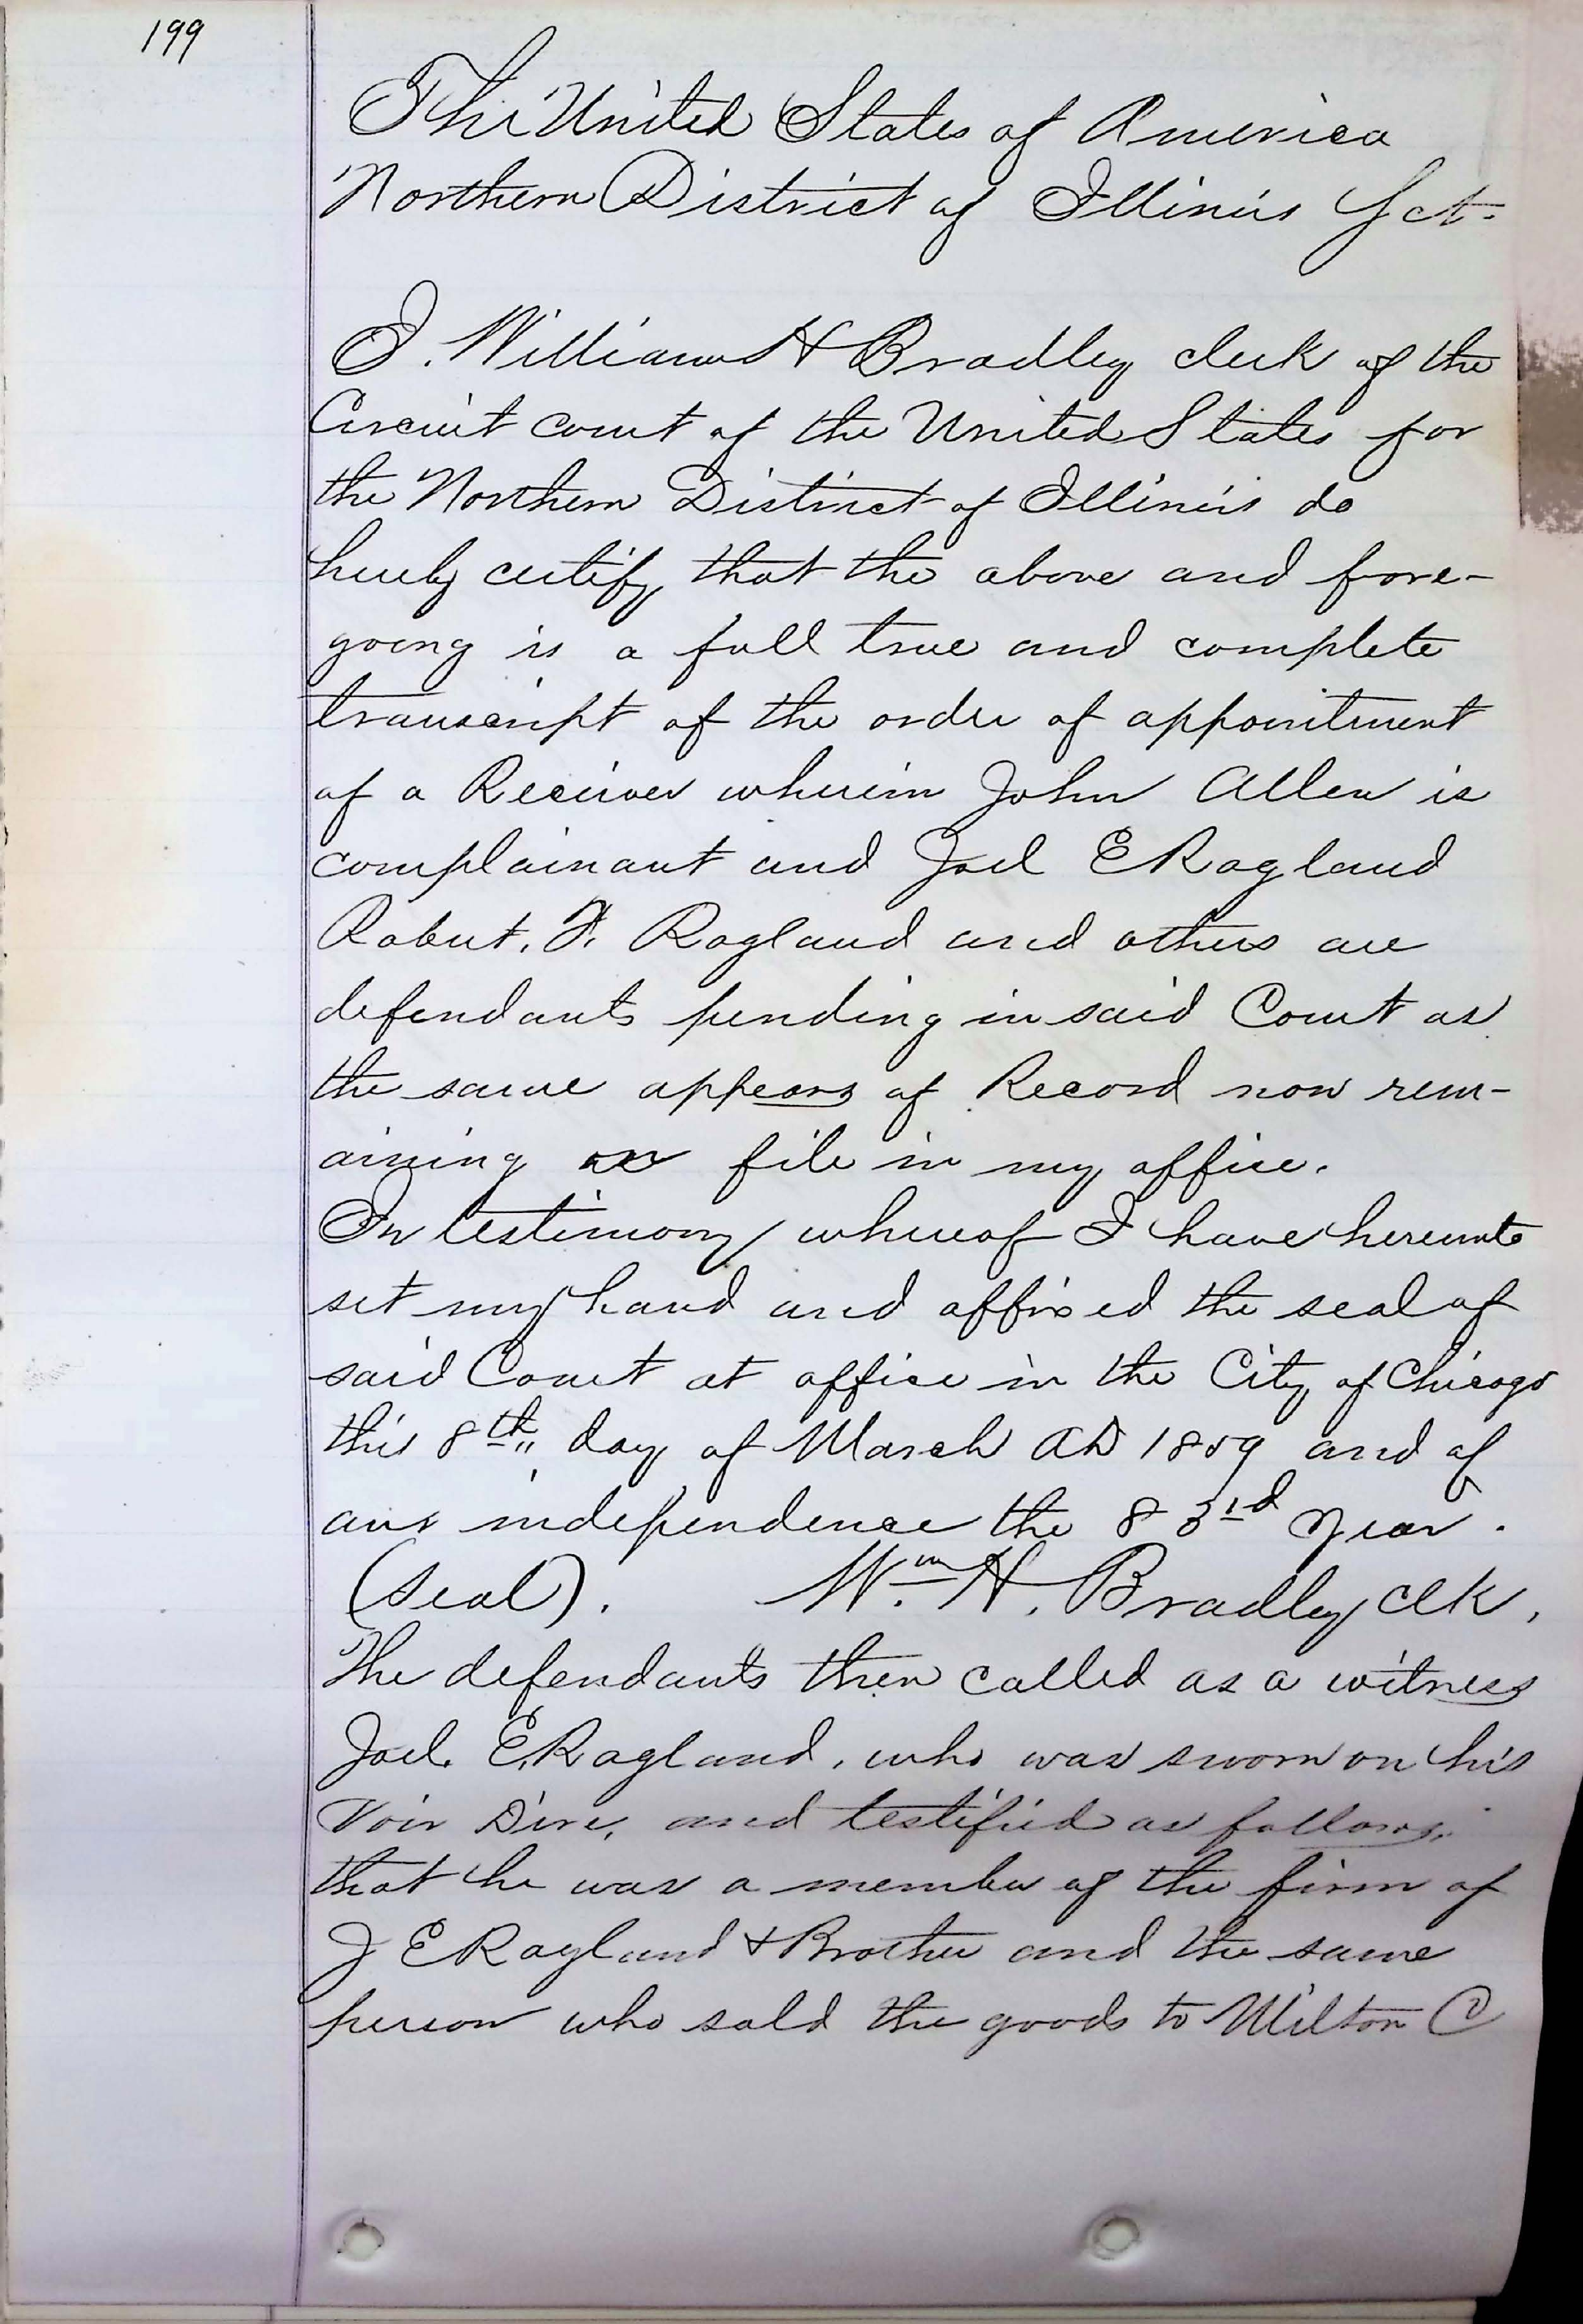 199
The United States of America
Northern District of Illinois Sct.
I. William H Bradley clerk of the
Circuit court of the United States for
the Northern District of Illinois do
hereby certify that the above and fore-
going is a full true and complete
transcript of the order of appointment
of a Receiver wherein John Allen is
complainant and Joel E Ragland
Robert. F. Ragland and others are
defendants pending in said Court as
the same appears of Record now rem-
aining on file in my office.
In testimony whereof I have hereunto
set my hand and affixed the seal of
said Court at office in the City of Chicago
this 8th day of March AD 1859 and of
our independence the 83rd year.
(Seal). Wm. H. Bradley clk.
The defendants then called as a witness
Joel. E. Ragland, who was sworn on his
Voir Dire, and testified as follows,
that he was a member of the firm of
J E Ragland & Brother and the same
person who sold the goods to Milton C